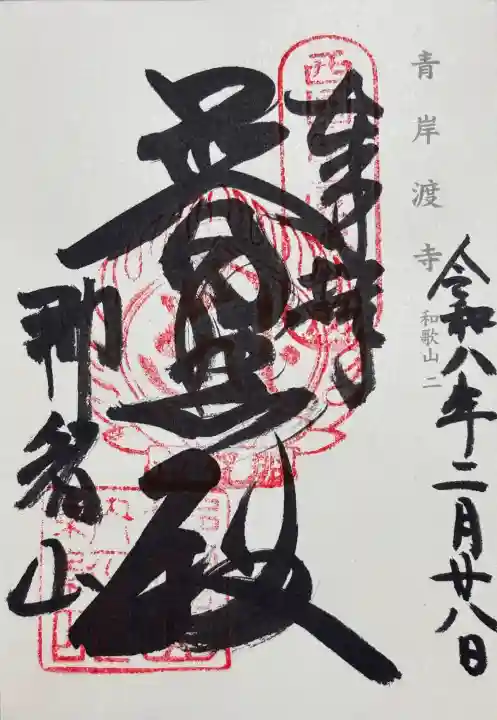 青岸渡寺
和歌山 二
令和八年二月廿八日
奉拝
普照殿
那智山